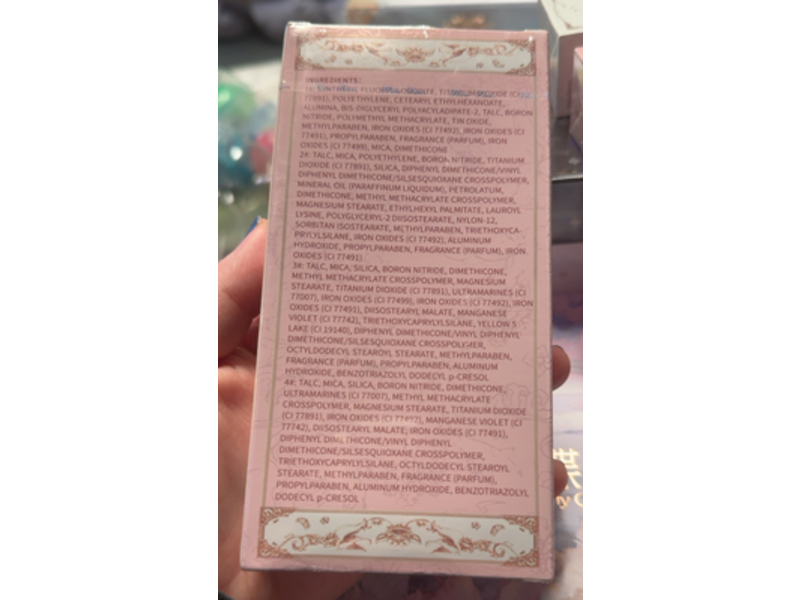 INGREDIENTS:
1#: SYNTHETIC FLUORPHLOGOPITE, TITANIUM DIOXIDE (CI
77891), POLYETHYLENE, CETEARYL ETHYLHEXANOATE,
ALUMINA, BIS-DIGLYCERYL POLYACYLADIPATE-2, TALC, BORON
NITRIDE, POLYMETHYL METHACRYLATE, TIN OXIDE,
METHYLPARABEN, IRON OXIDES (CI 77492), IRON OXIDES (CI
77491), PROPYLPARABEN, FRAGRANCE (PARFUM), IRON
OXIDES (CI 77499), MICA, DIMETHICONE
2#: TALC, MICA, POLYETHYLENE, BORON NITRIDE, TITANIUM
DIOXIDE (CI 77891), SILICA, DIPHENYL DIMETHICONE/VINYL
DIPHENYL DIMETHICONE/SILSESQUIOXANE CROSSPOLYMER,
MINERAL OIL (PARAFFINUM LIQUIDUM), PETROLATUM,
DIMETHICONE, METHYL METHACRYLATE CROSSPOLYMER,
MAGNESIUM STEARATE, ETHYLHEXYL PALMITATE, LAUROYL
LYSINE, POLYGLYCERYL-2 DIISOSTEARATE, NYLON-12,
SORBITAN ISOSTEARATE, METHYLPARABEN, TRIETHOXYCA-
PRYLYLSILANE, IRON OXIDES (CI 77492), ALUMINUM
HYDROXIDE, PROPYLPARABEN, FRAGRANCE (PARFUM), IRON
OXIDES (CI 77491)
3#: TALC, MICA, SILICA, BORON NITRIDE, DIMETHICONE,
METHYL METHACRYLATE CROSSPOLYMER, MAGNESIUM
STEARATE, TITANIUM DIOXIDE (CI 77891), ULTRAMARINES (CI
77007), IRON OXIDES (CI 77499), IRON OXIDES (CI 77492), IRON
OXIDES (CI 77491), DIISOSTEARYL MALATE, MANGANESE
VIOLET (CI 77742), TRIETHOXYCAPRYLYLSILANE, YELLOW 5
LAKE (CI 19140), DIPHENYL DIMETHICONE/VINYL DIPHENYL
DIMETHICONE/SILSESQUIOXANE CROSSPOLYMER,
OCTYLDODECYL STEAROYL STEARATE, METHYLPARABEN,
FRAGRANCE (PARFUM), PROPYLPARABEN, ALUMINUM
HYDROXIDE, BENZOTRIAZOLYL DODECYL p-CRESOL
4#: TALC, MICA, SILICA, BORON NITRIDE, DIMETHICONE,
ULTRAMARINES (CI 77007), METHYL METHACRYLATE
CROSSPOLYMER, MAGNESIUM STEARATE, TITANIUM DIOXIDE
(CI 77891), IRON OXIDES (CI 77492), MANGANESE VIOLET (CI
77742), DIISOSTEARYL MALATE, IRON OXIDES (CI 77491),
DIPHENYL DIMETHICONE/VINYL DIPHENYL
DIMETHICONE/SILSESQUIOXANE CROSSPOLYMER,
TRIETHOXYCAPRYLYLSILANE, OCTYLDODECYL STEAROYL
STEARATE, METHYLPARABEN, FRAGRANCE (PARFUM),
PROPYLPARABEN, ALUMINUM HYDROXIDE, BENZOTRIAZOLYL
DODECYL p-CRESOL